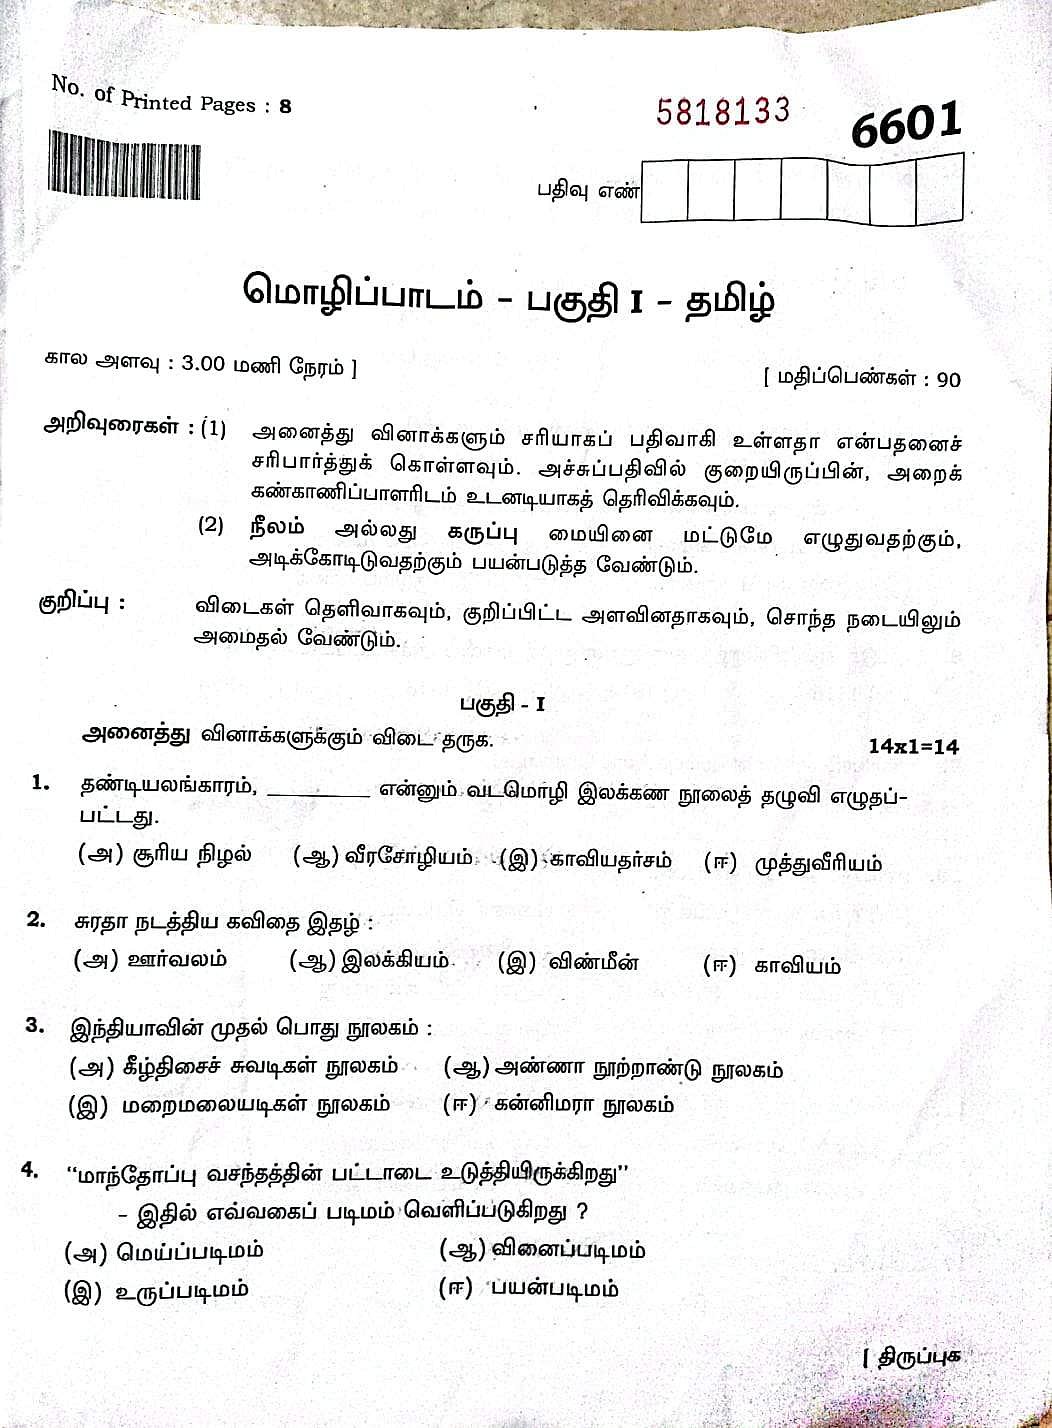 No. of Printed Pages : 8
5818133
6601
பதிவு எண்
மொழிப்பாடம் – பகுதி I – தமிழ்
கால அளவு : 3.00 மணி நேரம் ]
[ மதிப்பெண்கள் : 90
அறிவுரைகள் : (1) அனைத்து வினாக்களும் சரியாகப் பதிவாகி உள்ளதா என்பதனைச்
சரிபார்த்துக் கொள்ளவும். அச்சுப்பதிவில் குறையிருப்பின், அறைக்
கண்காணிப்பாளரிடம் உடனடியாகத் தெரிவிக்கவும்.
(2) நீலம் அல்லது கருப்பு மையினை மட்டுமே எழுதுவதற்கும்,
அடிக்கோடிடுவதற்கும் பயன்படுத்த வேண்டும்.
குறிப்பு : விடைகள் தெளிவாகவும், குறிப்பிட்ட அளவினதாகவும், சொந்த நடையிலும்
அமைதல் வேண்டும்.
பகுதி - I
அனைத்து வினாக்களுக்கும் விடை தருக.
14x1=14
1. தண்டியலங்காரம், ________ என்னும் வடமொழி இலக்கண நூலைத் தழுவி எழுதப்-
பட்டது.
(அ) சூரிய நிழல் (ஆ) வீரசோழியம் (இ) காவியதர்சம் (ஈ) முத்துவீரியம்
2. சுரதா நடத்திய கவிதை இதழ் :
(அ) ஊர்வலம் (ஆ) இலக்கியம் (இ) விண்மீன் (ஈ) காவியம்
3. இந்தியாவின் முதல் பொது நூலகம் :
(அ) கீழ்திசைச் சுவடிகள் நூலகம் (ஆ) அண்ணா நூற்றாண்டு நூலகம்
(இ) மறைமலையடிகள் நூலகம் (ஈ) கன்னிமரா நூலகம்
4. “மாந்தோப்பு வசந்தத்தின் பட்டாடை உடுத்தியிருக்கிறது”
– இதில் எவ்வகைப் படிமம் வெளிப்படுகிறது ?
(அ) மெய்ப்படிமம் (ஆ) வினைப்படிமம்
(இ) உருப்படிமம் (ஈ) பயன்படிமம்
[ திருப்புக